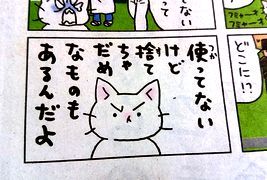 使ってない
けど
捨て
ちゃ
だめ
なものも
あるんだよ
どこに!?